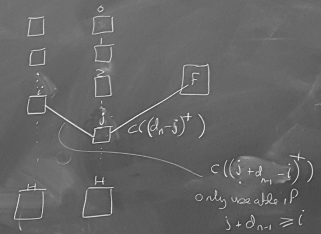 0
1
2
F
i
j
c((dₙ-j)⁺)
c((j+dₙ₋₁-i)⁺)
only useable iP
j+dₙ₋₁ ≥ i
H
H